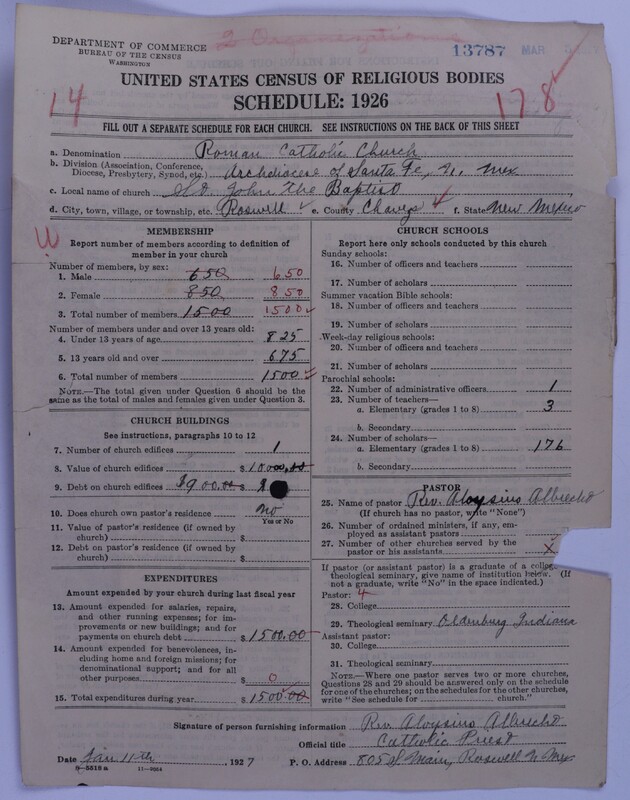 2 Organizations
DEPARTMENT OF COMMERCE
BUREAU OF THE CENSUS
WASHINGTON
13787
UNITED STATES CENSUS OF RELIGIOUS BODIES
SCHEDULE: 1926
14
178
FILL OUT A SEPARATE SCHEDULE FOR EACH CHURCH. SEE INSTRUCTIONS ON THE BACK OF THIS SHEET
a. Denomination Roman Catholic Church
b. Division (Association, Conference, Diocese, Presbytery, Synod, etc.) Archdiocese of Santa Fe, N. Mex
c. Local name of church St. John The Baptist
d. City, town, village, or township, etc. Roswell e. County Chaves f. State New Mexico
MEMBERSHIP
Report number of members according to definition of
member in your church
Number of members, by sex:
1. Male 650 650
2. Female 850 850
3. Total number of members 1500 1500
Number of members under and over 13 years old:
4. Under 13 years of age 825
5. 13 years old and over 675
6. Total number of members 1500
NOTE.—The total given under Question 6 should be the
same as the total of males and females given under Question 3.
CHURCH BUILDINGS
See instructions, paragraphs 10 to 12
7. Number of church edifices 1
8. Value of church edifices $10000.00
9. Debt on church edifices $900.00 $
10. Does church own pastor's residence? no
Yes or No
11. Value of pastor's residence (if owned by
church) $
12. Debt on pastor's residence (if owned by
church) $
EXPENDITURES
Amount expended by your church during last fiscal year
13. Amount expended for salaries, repairs,
and other running expenses; for im-
provements or new buildings; and for
payments on church debt $1500.00
14. Amount expended for benevolences, in-
cluding home and foreign missions; for
denominational support; and for all
other purposes $ 0
15. Total expenditures during year $1500.00
CHURCH SCHOOLS
Report here only schools conducted by this church
Sunday schools:
16. Number of officers and teachers
17. Number of scholars
Summer vacation Bible schools:
18. Number of officers and teachers
19. Number of scholars
Week-day religious schools:
20. Number of officers and teachers
21. Number of scholars
Parochial schools:
22. Number of administrative officers 1
23. Number of teachers—
a. Elementary (grades 1 to 8) 3
b. Secondary
24. Number of scholars—
a. Elementary (grades 1 to 8) 176
b. Secondary
PASTOR
25. Name of pastor Rev. Aloysius Albrecht
(If church has no pastor, write "None")
26. Number of ordained ministers, if any, em-
ployed as assistant pastors
27. Number of other churches served by the
pastor or his assistants x
If pastor (or assistant pastor) is a graduate of a college
theological seminary, give name of institution below. (If
not a graduate, write "No" in the space indicated.)
Pastor: 4
28. College
29. Theological seminary Oldenburg Indiana
Assistant pastor:
30. College
31. Theological seminary
NOTE.—Where one pastor serves two or more churches,
Questions 28 and 29 should be answered only on the schedule
for one of the churches; on the schedules for the other churches,
write "See schedule for church."
Signature of person furnishing information Rev. Aloysius Albrecht
Official title Catholic Priest
Date Jan 11th, 1927 P. O. Address 805 S Main, Roswell N. Mex
8—5518a 11—9064